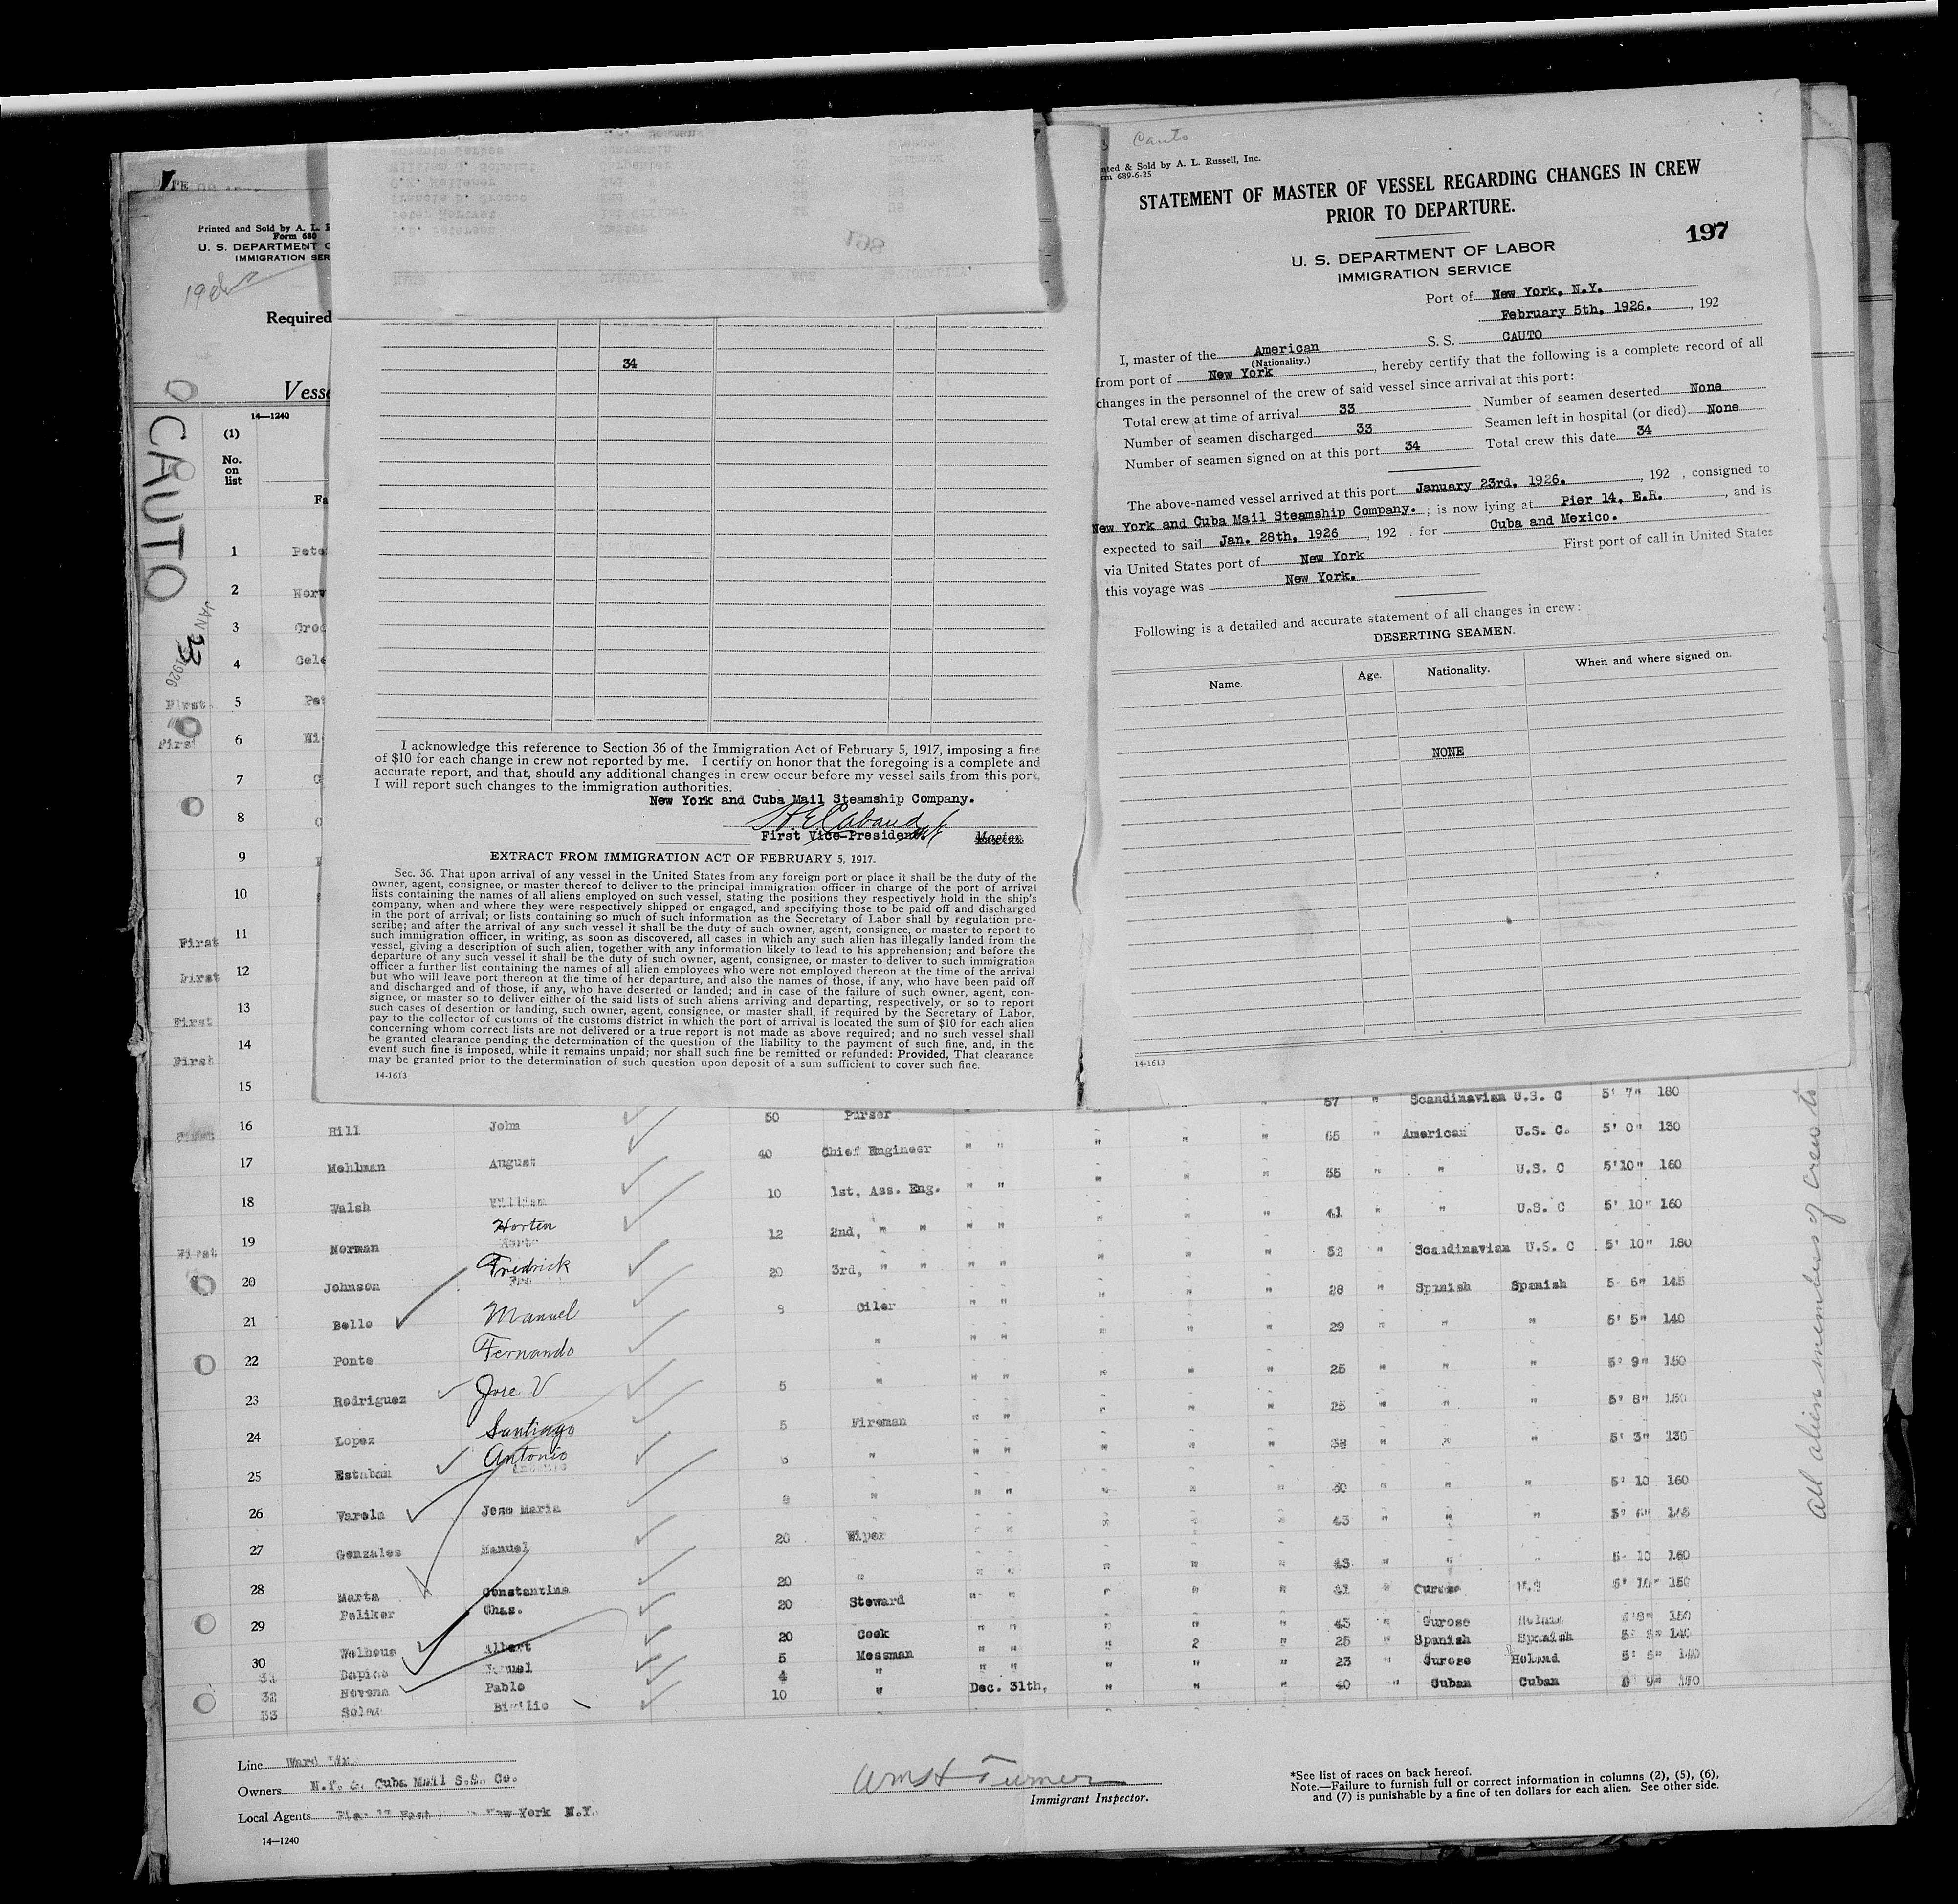 Cauto
nted & Sold by A. L. Russell, Inc.
rm 689-6-25
STATEMENT OF MASTER OF VESSEL REGARDING CHANGES IN CREW
PRIOR TO DEPARTURE.
197
U. S. DEPARTMENT OF LABOR
IMMIGRATION SERVICE
Port of New York, N.Y.
February 5th, 1926. , 192
I, master of the American S. S. CAUTO
(Nationality.)
from port of New York , hereby certify that the following is a complete record of all
changes in the personnel of the crew of said vessel since arrival at this port:
Total crew at time of arrival 33 Number of seamen deserted None
Number of seamen discharged 33 Seamen left in hospital (or died) None
Number of seamen signed on at this port 34 Total crew this date 34
The above-named vessel arrived at this port January 23rd, 1926. , 192 , consigned to
New York and Cuba Mail Steamship Company. ; is now lying at Pier 14, E.R. , and is
expected to sail Jan. 28th, 1926 , 192 . for Cuba and Mexico.
via United States port of New York First port of call in United States
this voyage was New York.
Following is a detailed and accurate statement of all changes in crew:
DESERTING SEAMEN.
Name. Age. Nationality. When and where signed on.
NONE
14-1613
Printed and Sold by A. L. R
Form 680
U. S. DEPARTMENT O
IMMIGRATION SER
Required
Vesse
14—1240
(1)
No.
on
list
Fa
CAUTO
JAN 23 1926
34
I acknowledge this reference to Section 36 of the Immigration Act of February 5, 1917, imposing a fine
of $10 for each change in crew not reported by me. I certify on honor that the foregoing is a complete and
accurate report, and that, should any additional changes in crew occur before my vessel sails from this port,
I will report such changes to the immigration authorities.
New York and Cuba Mail Steamship Company.
First Vice-President. Master.
EXTRACT FROM IMMIGRATION ACT OF FEBRUARY 5, 1917.
Sec. 36. That upon arrival of any vessel in the United States from any foreign port or place it shall be the duty of the
owner, agent, consignee, or master thereof to deliver to the principal immigration officer in charge of the port of arrival
lists containing the names of all aliens employed on such vessel, stating the positions they respectively hold in the ship's
company, when and where they were respectively shipped or engaged, and specifying those to be paid off and discharged
in the port of arrival; or lists containing so much of such information as the Secretary of Labor shall by regulation pre-
scribe; and after the arrival of any such vessel it shall be the duty of such owner, agent, consignee, or master to report to
such immigration officer, in writing, as soon as discovered, all cases in which any such alien has illegally landed from the
vessel, giving a description of such alien, together with any information likely to lead to his apprehension; and before the
departure of any such vessel it shall be the duty of such owner, agent, consignee, or master to deliver to such immigration
officer a further list containing the names of all alien employees who were not employed thereon at the time of the arrival
but who will leave port thereon at the time of her departure, and also the names of those, if any, who have been paid off
and discharged and of those, if any, who have deserted or landed; and in case of the failure of such owner, agent, con-
signee, or master so to deliver either of the said lists of such aliens arriving and departing, respectively, or so to report
such cases of desertion or landing, such owner, agent, consignee, or master shall, if required by the Secretary of Labor,
pay to the collector of customs of the customs district in which the port of arrival is located the sum of $10 for each alien
concerning whom correct lists are not delivered or a true report is not made as above required; and no such vessel shall
be granted clearance pending the determination of the question of the liability to the payment of such fine, and, in the
event such fine is imposed, while it remains unpaid; nor shall such fine be remitted or refunded: Provided, That clearance
may be granted prior to the determination of such question upon deposit of a sum sufficient to cover such fine.
14-1613
1 Pete
2 Norv
3 Croc
4 Cele
First 5 Pet
First 6 Wi
7
8
9
10
First 11
First 12
First 13
First 14
15 57 " Scandinavian U.S. C 5' 7" 180
16 Hill John 50 Purser " " " 65 " American U.S. C. 5' 0" 130
17 Mehlman August 40 Chief Engineer " " " " " 35 " " U.S. C 5'10" 160
18 Walsh William 10 1st, Ass. Eng. " " " " " 41 " " U.S. C 5' 10" 160
First 19 Norman Horten 12 2nd, " " " " " " " 52 " Scandinavian U.S. C 5' 10" 180
20 Johnson Fredrick 20 3rd, " " " " " " " 28 " Spanish Spanish 5 6" 145
21 Bello Manuel 9 Oiler " " " " " 29 " " " 5' 5" 140
22 Ponte Fernando " " " " " " 25 " " " 5' 9" 150
23 Rodriguez Jose V 5 " " " " " " 25 " " " 5' 8" 150
24 Lopez Santiago 5 Fireman " " " " " " " " 5' 3" 130
25 Estaban Antonio " " " " " " 30 " " " 5' 10 160
26 Varela Jese Maria " " " " " " 43 " " "
27 Gonzales Manuel 20 Wiper " " " " " 43 " " 5 10 160
28 Marta Constantina 20 " " "
Peliker Chas. 20 Steward " "
29 Welhous Albert 20 Cook " " 43
30 Dapina 5 Messman " " " 2 " 25 " Spanish Spanish
32 Novena Pablo 4 " " " " " " 23 " Holand
33 Bivilio 10 " Dec. 31th, " " " 40 " Cuban Cuban
All alien members of crew to
Line Ward
Owners N.Y. & Cuba Mail S.S. Co.
Local Agents New York N.Y.
14—1240
Wm H Turner
Immigrant Inspector.
*See list of races on back hereof.
Note.—Failure to furnish full or correct information in columns (2), (5), (6),
and (7) is punishable by a fine of ten dollars for each alien. See other side.